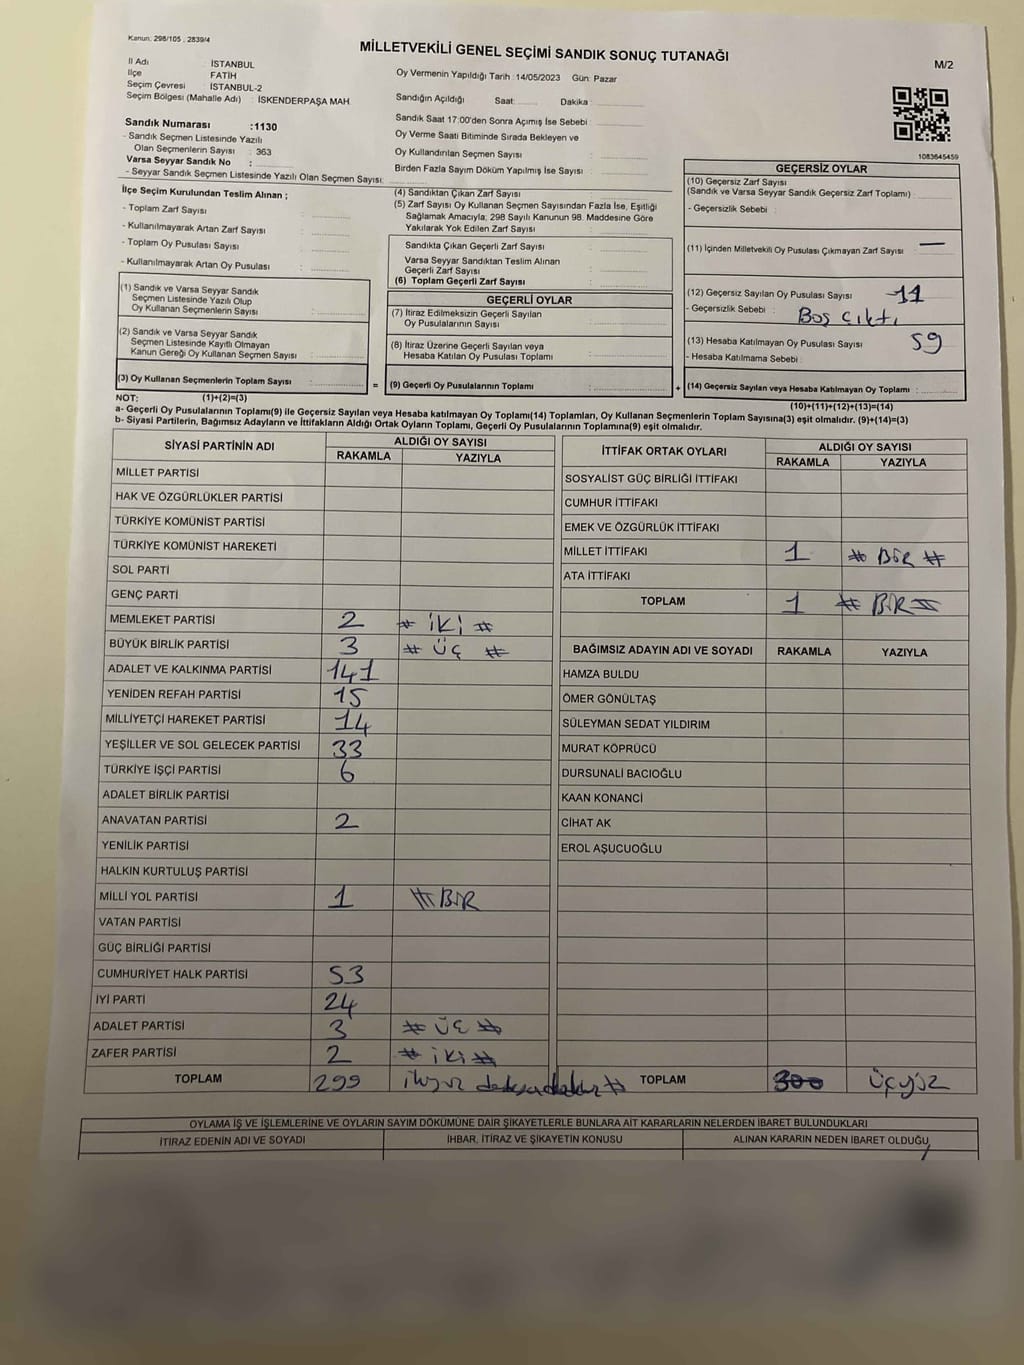 Kanun: 298/105 , 2839/4
MİLLETVEKİLİ GENEL SEÇİMİ SANDIK SONUÇ TUTANAĞI
M/2
İl Adı : İSTANBUL
İlçe : FATİH
Seçim Çevresi : İSTANBUL-2
Seçim Bölgesi (Mahalle Adı) : İSKENDERPAŞA MAH.
Sandık Numarası :1130
- Sandık Seçmen Listesinde Yazılı
Olan Seçmenlerin Sayısı : 363
Varsa Seyyar Sandık No :
- Seyyar Sandık Seçmen Listesinde Yazılı Olan Seçmen Sayısı:
Oy Vermenin Yapıldığı Tarih :14/05/2023 Gün: Pazar
Sandığın Açıldığı Saat: Dakika :
Sandık Saat 17:00'den Sonra Açımış İse Sebebi :
Oy Verme Saati Bitiminde Sırada Bekleyen ve
Oy Kullandırılan Seçmen Sayısı :
Birden Fazla Sayım Döküm Yapılmış İse Sayısı :
1083645459
İlçe Seçim Kurulundan Teslim Alınan ;
- Toplam Zarf Sayısı :
- Kullanılmayarak Artan Zarf Sayısı :
- Toplam Oy Pusulası Sayısı :
- Kullanılmayarak Artan Oy Pusulası :
(1) Sandık ve Varsa Seyyar Sandık
Seçmen Listesinde Yazılı Olup
Oy Kullanan Seçmenlerin Sayısı :
(2) Sandık ve Varsa Seyyar Sandık
Seçmen Listesinde Kayıtlı Olmayan
Kanun Gereği Oy Kullanan Seçmen Sayısı :
(3) Oy Kullanan Seçmenlerin Toplam Sayısı :
(4) Sandıktan Çıkan Zarf Sayısı :
(5) Zarf Sayısı Oy Kullanan Seçmen Sayısından Fazla İse, Eşitliği
Sağlamak Amacıyla; 298 Sayılı Kanunun 98. Maddesine Göre
Yakılarak Yok Edilen Zarf Sayısı :
Sandıkta Çıkan Geçerli Zarf Sayısı :
Varsa Seyyar Sandıktan Teslim Alınan
Geçerli Zarf Sayısı :
(6) Toplam Geçerli Zarf Sayısı :
GEÇERLİ OYLAR
(7) İtiraz Edilmeksizin Geçerli Sayılan
Oy Pusulalarının Sayısı :
(8) İtiraz Üzerine Geçerli Sayılan veya
Hesaba Katılan Oy Pusulası Toplamı :
= (9) Geçerli Oy Pusulalarının Toplamı : +
GEÇERSİZ OYLAR
(10) Geçersiz Zarf Sayısı
(Sandık ve Varsa Seyyar Sandık Geçersiz Zarf Toplamı) :
- Geçersizlik Sebebi :
(11) İçinden Milletvekili Oy Pusulası Çıkmayan Zarf Sayısı : —
(12) Geçersiz Sayılan Oy Pusulası Sayısı : 11
- Geçersizlik Sebebi : Boş Çıktı
(13) Hesaba Katılmayan Oy Pusulası Sayısı : 59
- Hesaba Katılmama Sebebi :
(14) Geçersiz Sayılan veya Hesaba Katılmayan Oy Toplamı :
NOT: (1)+(2)=(3) (10)+(11)+(12)+(13)=(14)
a- Geçerli Oy Pusulalarının Toplamı(9) ile Geçersiz Sayılan veya Hesaba katılmayan Oy Toplamı(14) Toplamları, Oy Kullanan Seçmenlerin Toplam Sayısına(3) eşit olmalıdır. (9)+(14)=(3)
b- Siyasi Partilerin, Bağımsız Adayların ve İttifakların Aldığı Ortak Oyların Toplamı, Geçerli Oy Pusulalarının Toplamına(9) eşit olmalıdır.
SİYASİ PARTİNİN ADI ALDIĞI OY SAYISI
RAKAMLA YAZIYLA
MİLLET PARTİSİ
HAK VE ÖZGÜRLÜKLER PARTİSİ
TÜRKİYE KOMÜNİST PARTİSİ
TÜRKİYE KOMÜNİST HAREKETİ
SOL PARTİ
GENÇ PARTİ
MEMLEKET PARTİSİ 2 # İKİ #
BÜYÜK BİRLİK PARTİSİ 3 # ÜÇ #
ADALET VE KALKINMA PARTİSİ 141
YENİDEN REFAH PARTİSİ 15
MİLLİYETÇİ HAREKET PARTİSİ 14
YEŞİLLER VE SOL GELECEK PARTİSİ 33
TÜRKİYE İŞÇİ PARTİSİ 6
ADALET BİRLİK PARTİSİ
ANAVATAN PARTİSİ 2
YENİLİK PARTİSİ
HALKIN KURTULUŞ PARTİSİ
MİLLİ YOL PARTİSİ 1 # BİR
VATAN PARTİSİ
GÜÇ BİRLİĞİ PARTİSİ
CUMHURİYET HALK PARTİSİ 53
İYİ PARTİ 24
ADALET PARTİSİ 3 # ÜÇ #
ZAFER PARTİSİ 2 # İKİ #
TOPLAM 299
İTTİFAK ORTAK OYLARI ALDIĞI OY SAYISI
RAKAMLA YAZIYLA
SOSYALİST GÜÇ BİRLİĞİ İTTİFAKI
CUMHUR İTTİFAKI
EMEK VE ÖZGÜRLÜK İTTİFAKI
MİLLET İTTİFAKI 1 # BİR #
ATA İTTİFAKI
TOPLAM 1 # BİR #
BAĞIMSIZ ADAYIN ADI VE SOYADI RAKAMLA YAZIYLA
HAMZA BULDU
ÖMER GÖNÜLTAŞ
SÜLEYMAN SEDAT YILDIRIM
MURAT KÖPRÜCÜ
DURSUNALİ BACIOĞLU
KAAN KONANCİ
CİHAT AK
EROL AŞUCUOĞLU
TOPLAM 300 üçyüz
OYLAMA İŞ VE İŞLEMLERİNE VE OYLARIN SAYIM DÖKÜMÜNE DAİR ŞİKAYETLERLE BUNLARA AİT KARARLARIN NELERDEN İBARET BULUNDUKLARI
İTİRAZ EDENİN ADI VE SOYADI İHBAR, İTİRAZ VE ŞİKAYETİN KONUSU ALINAN KARARIN NEDEN İBARET OLDUĞU